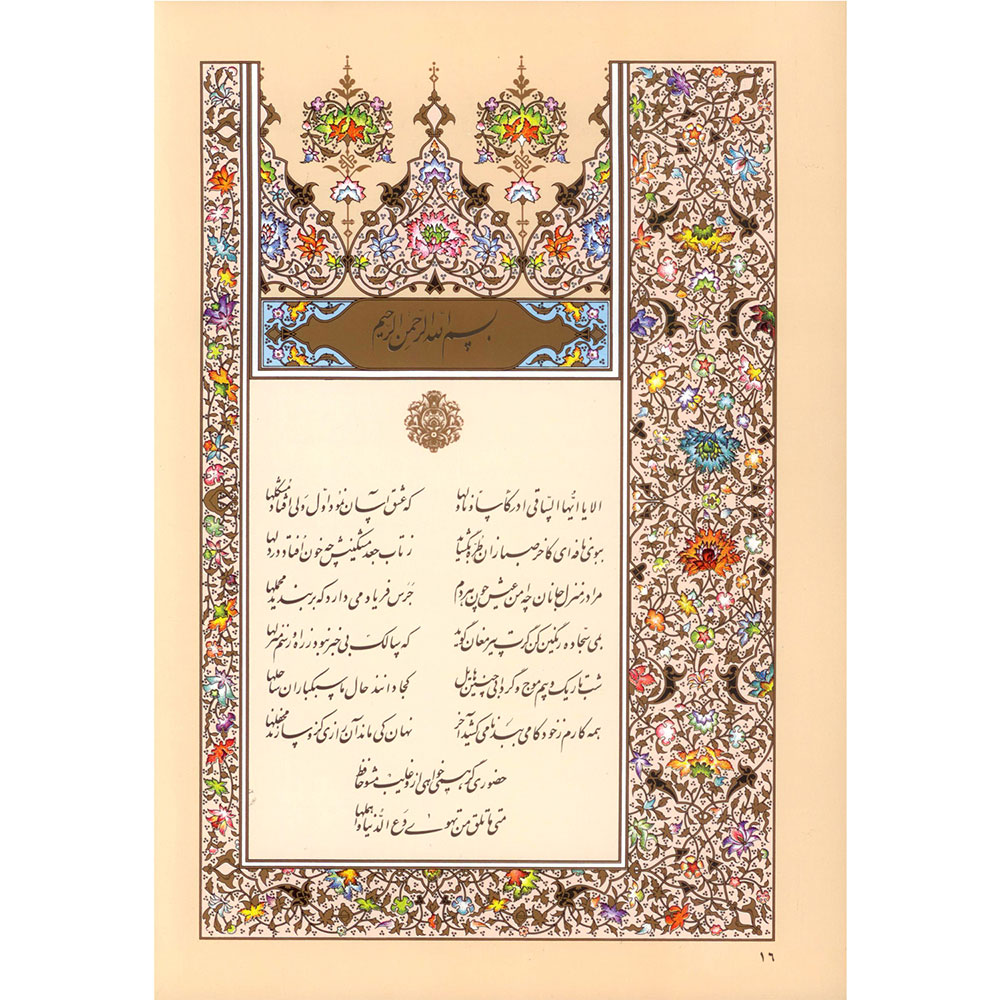 بسم الله الرحمن الرحیم
الا یا ایها الساقی ادر کاسا و ناولها که عشق آسان نمود اول ولی افتاد مشکلها
ببوی نافه ای کاخر صبا زان طره بگشاید ز تاب جعد مشکینش چه خون افتاد در دلها
مرا در منزل جانان چه امن عیش چون هر دم جرس فریاد می دارد که بربندید محملها
بمی سجاده رنگین کن گرت پیر مغان گوید که سالک بی خبر نبود ز راه و رسم منزلها
شب تاریک و بیم موج و گردابی چنین هایل کجا دانند حال ما سبکباران ساحلها
همه کارم ز خود کامی ببدنامی کشید آخر نهان کی ماند آن رازی کزو سازند محفلها
حضوری گر همی خواهی ازو غایب مشو حافظ
متی ما تلق من تهوی دع الدنیا و اهملها
١٦